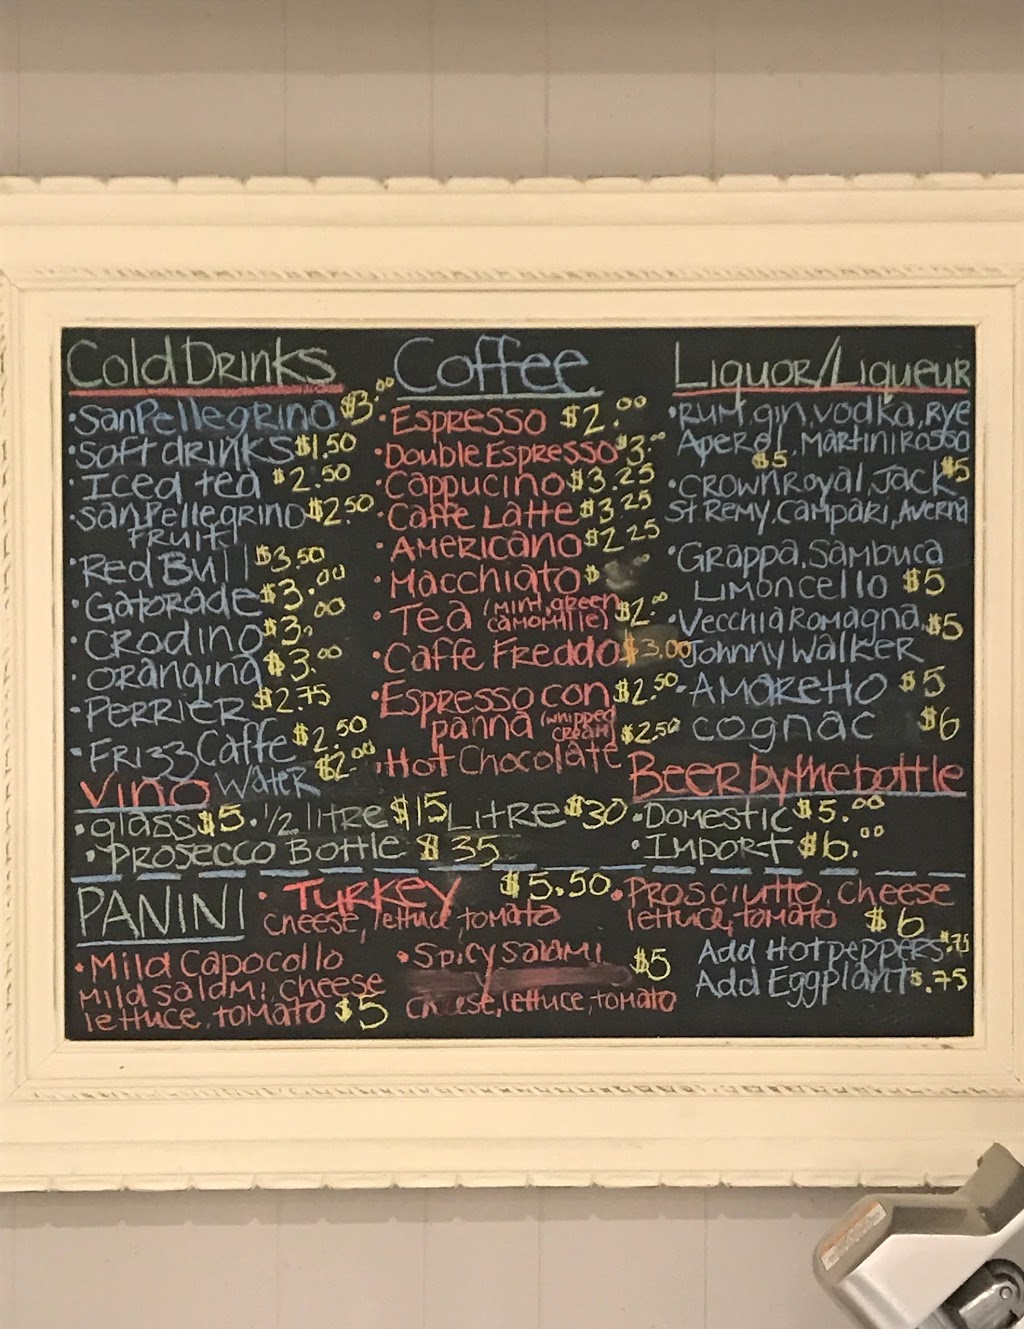 Cold Drinks
• San Pellegrino $3.00
• Soft drinks $1.50
• Iced tea $2.50
• San Pellegrino $2.50
Fruit
• Red Bull $3.50
• Gatorade $3.00
• Crodino $3.00
• Orangina $3.00
• Perrier $2.75
• Frizz Caffe $2.50
Water $2.00
Coffee
• Espresso $2.00
• Double Espresso $3.00
• Cappucino $3.25
• Caffe Latte $3.25
• Americano $2.25
• Macchiato $
• Tea (mint, green $2.00
camomille)
• Caffe Freddo $3.00
• Espresso con $2.50
panna (whipped
cream)
• Hot Chocolate $2.50
Liquor/Liqueur
• Rum, gin, vodka, Rye
Aperol, Martini Rosso
$5
• Crown Royal, Jack $5
St. Remy, Campari, Averna
• Grappa, Sambuca
Limoncello $5
• Vecchia Romagna, $5
Johnny Walker
• Amaretto $5
cognac $6
Vino
• glass $5 • 1/2 litre $15 Litre $30
• Prosecco Bottle $35
Beer by the bottle
• Domestic $5.00
• Import $6.00
PANINI
• Turkey $5.50
cheese, lettuce, tomato
• Prosciutto, cheese
lettuce, tomato $6
• Mild Capocollo
Mild salami, cheese
lettuce, tomato $5
• Spicy salami $5
Cheese, lettuce, tomato
Add Hot peppers $.75
Add Eggplant $.75